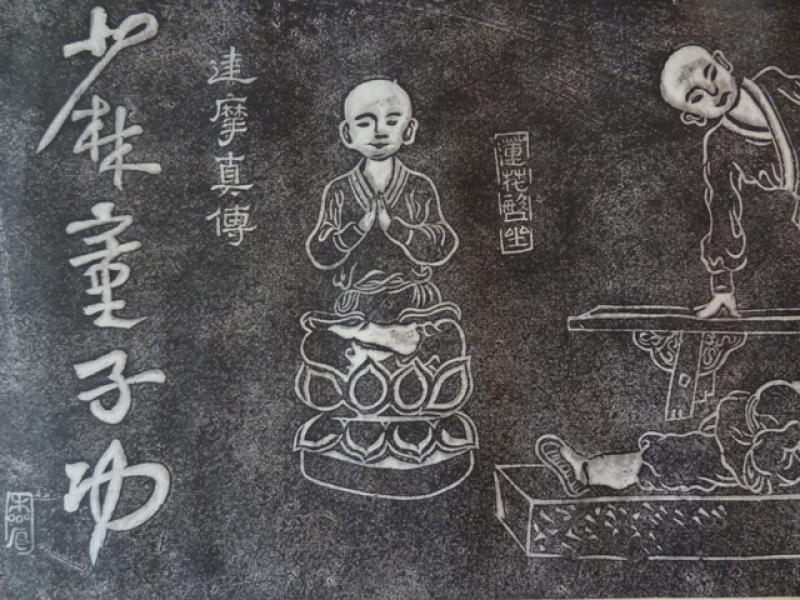 少林童子功
達摩真傳
蓮花盤坐